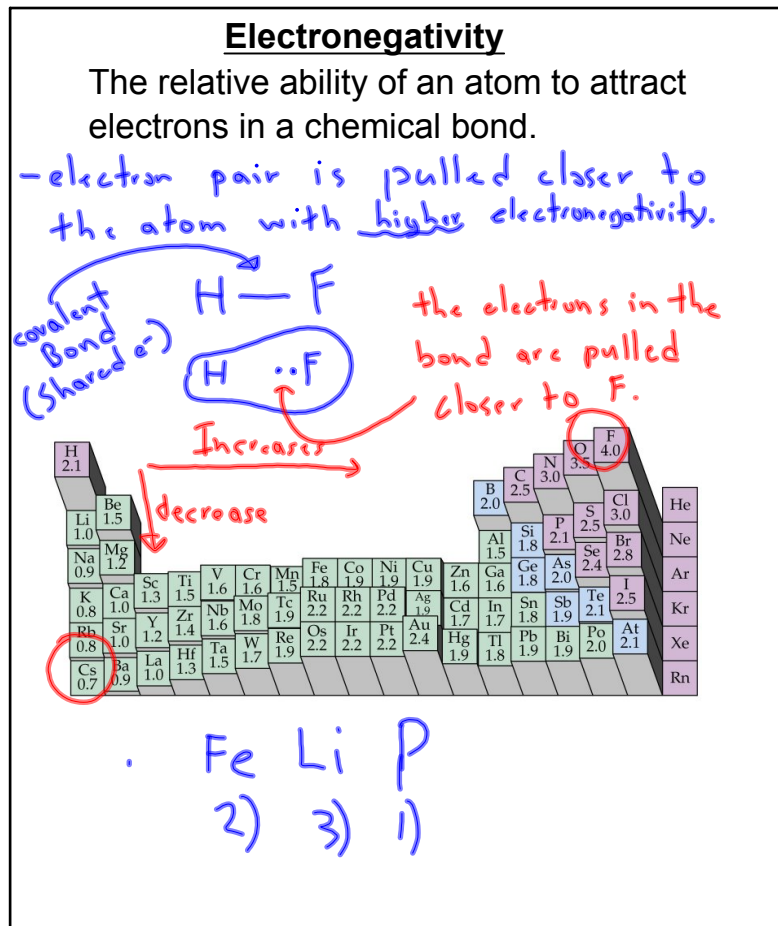 Electronegativity
The relative ability of an atom to attract
electrons in a chemical bond.
-electron pair is pulled closer to
the atom with higher electronegativity.
covalent
Bond
(Shared e⁻)
H — F
H ··F
the electrons in the
bond are pulled
closer to F.
Increases
decrease
H
2.1
Li
1.0
Be
1.5
Na
0.9
Mg
1.2
K
0.8
Ca
1.0
Sc
1.3
Ti
1.5
V
1.6
Cr
1.6
Mn
1.5
Fe
1.8
Co
1.9
Ni
1.9
Cu
1.9
Zn
1.6
Ga
1.6
Ge
1.8
As
2.0
Se
2.4
Br
2.8
Rb
0.8
Sr
1.0
Y
1.2
Zr
1.4
Nb
1.6
Mo
1.8
Tc
1.9
Ru
2.2
Rh
2.2
Pd
2.2
Ag
1.9
Cd
1.7
In
1.7
Sn
1.8
Sb
1.9
Te
2.1
I
2.5
Cs
0.7
Ba
0.9
La
1.0
Hf
1.3
Ta
1.5
W
1.7
Re
1.9
Os
2.2
Ir
2.2
Pt
2.2
Au
2.4
Hg
1.9
Tl
1.8
Pb
1.9
Bi
1.9
Po
2.0
At
2.1
B
2.0
C
2.5
N
3.0
O
3.5
F
4.0
Al
1.5
Si
1.8
P
2.1
S
2.5
Cl
3.0
He
Ne
Ar
Kr
Xe
Rn
Fe Li P
2) 3) 1)